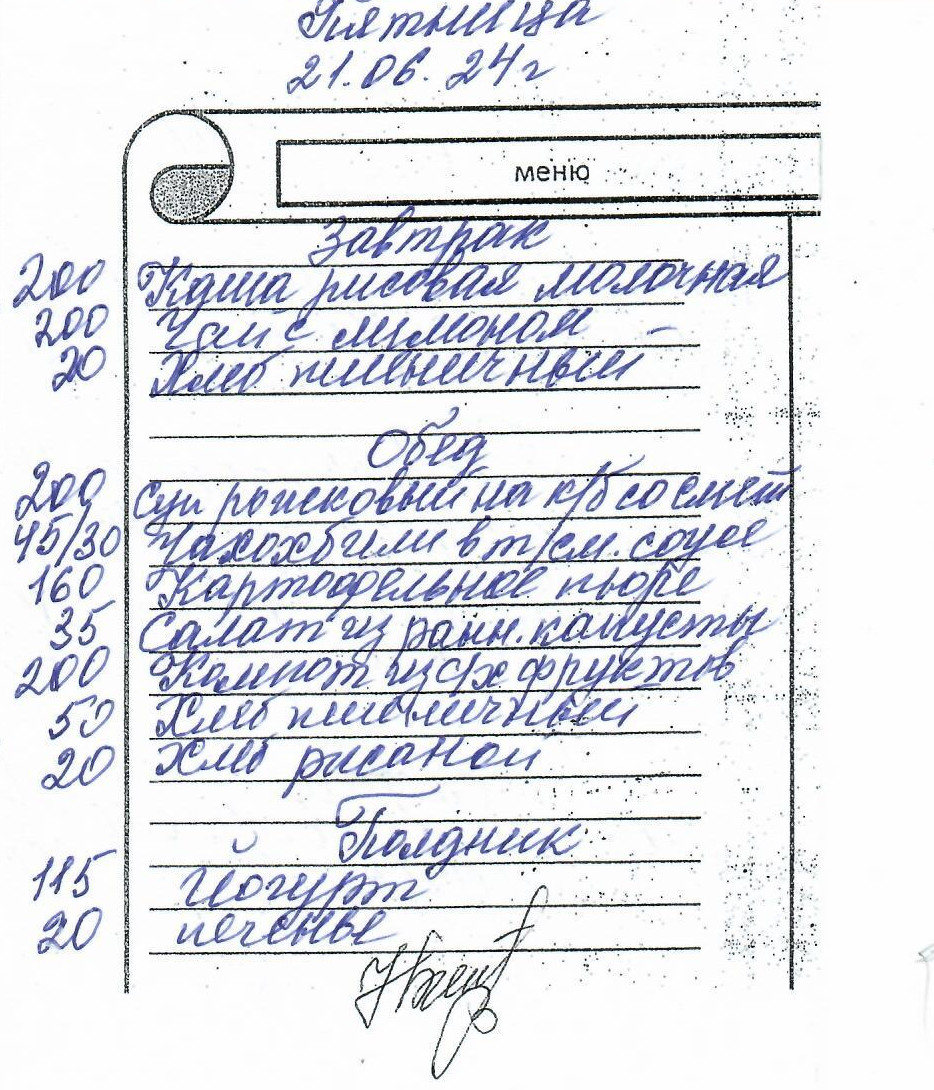 Пятница
21.06.24г
меню
Завтрак
200 Каша рисовая молочная
200 Чай с лимоном
20 Хлеб пшеничный
Обед
200 Суп рожковый на к/б со смет
45/30 Чахохбили в т/см. соусе
160 Картофельное пюре
35 Салат из ранн. капусты
200 Компот из с/х фруктов
50 Хлеб пшеничный
20 Хлеб ржаной
Полдник
115 Йогурт
20 печенье